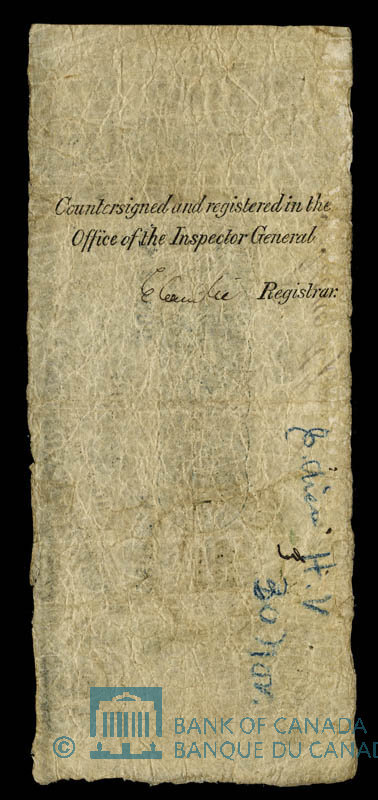 Countersigned and registered in the
Office of the Inspector General
Registrar.
H.V
© BANK OF CANADA
BANQUE DU CANAD